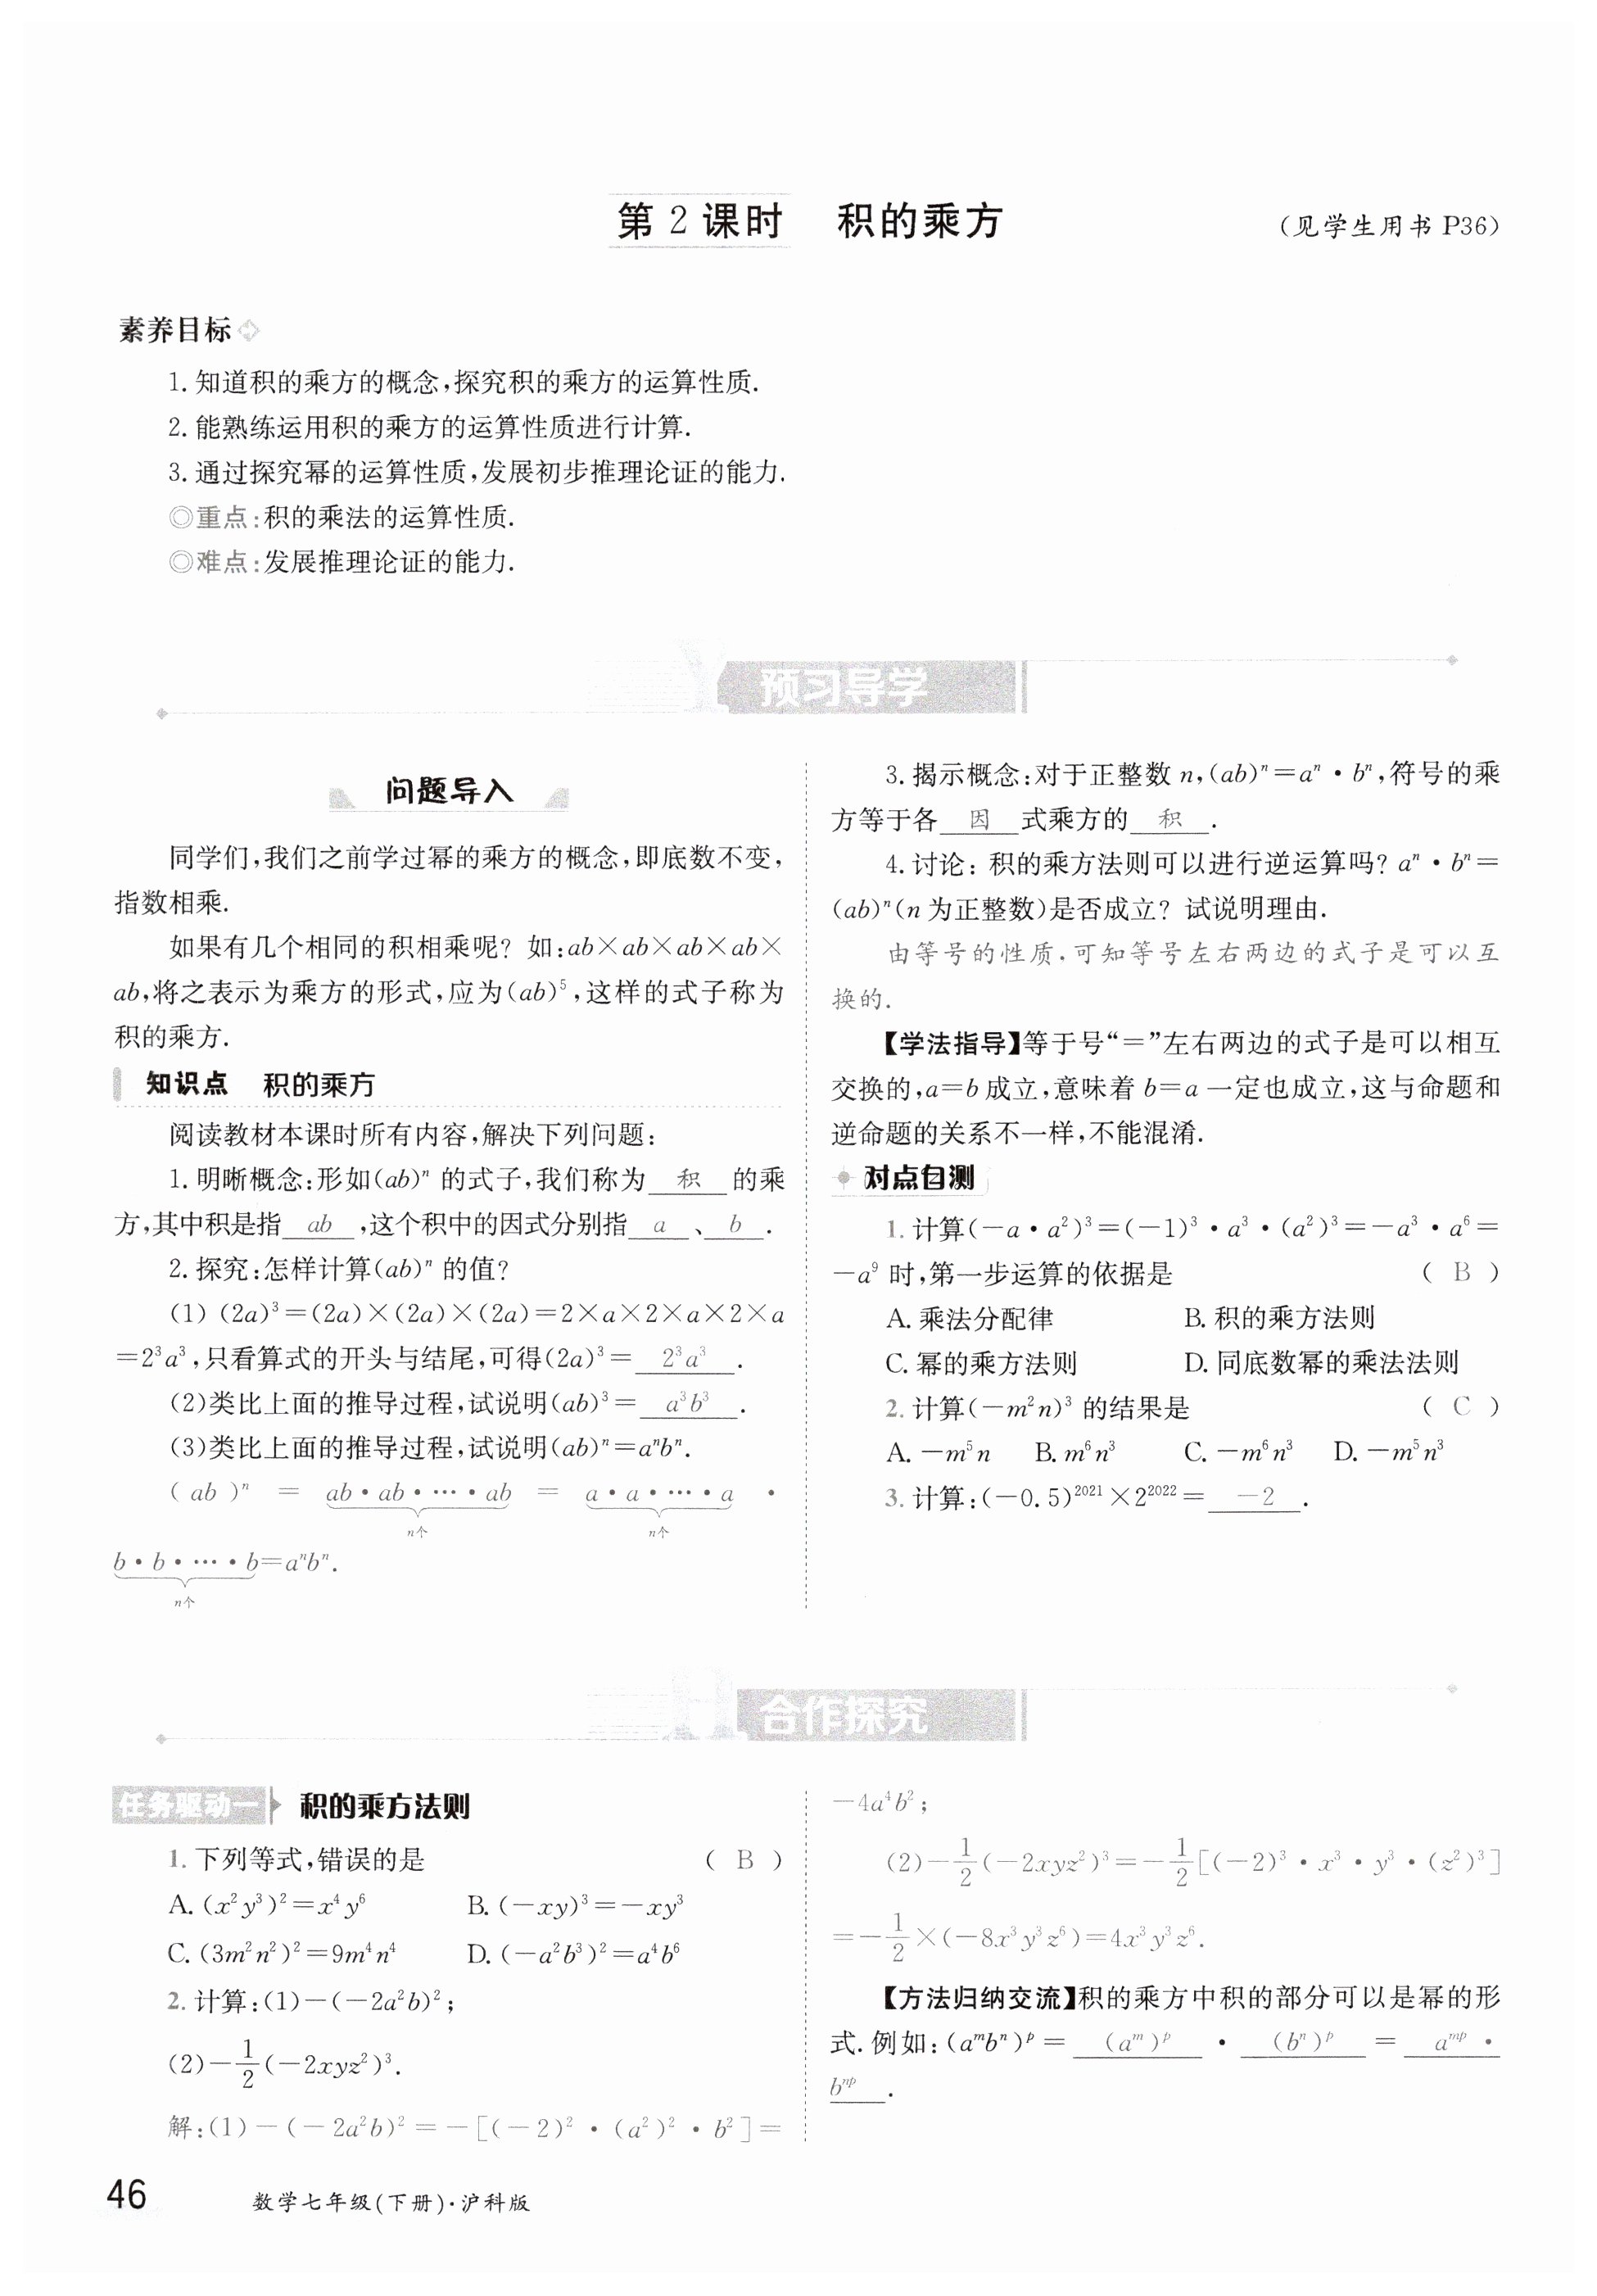 第 2 课时 积的乘方 (见学生用书 P36)
素养目标
1. 知道积的乘方的概念,探究积的乘方的运算性质.
2. 能熟练运用积的乘方的运算性质进行计算.
3. 通过探究幂的运算性质,发展初步推理论证的能力.
◎重点:积的乘法的运算性质.
◎难点:发展推理论证的能力.
预习导学
问题导入
同学们,我们之前学过幂的乘方的概念,即底数不变,
指数相乘.
如果有几个相同的积相乘呢? 如:ab×ab×ab×ab×
ab,将之表示为乘方的形式,应为(ab)⁵,这样的式子称为
积的乘方.
知识点 积的乘方
阅读教材本课时所有内容,解决下列问题:
1. 明晰概念:形如(ab)ⁿ 的式子,我们称为 积 的乘
方,其中积是指 ab ,这个积中的因式分别指 a 、 b .
2. 探究:怎样计算(ab)ⁿ 的值?
(1) (2a)³=(2a)×(2a)×(2a)=2×a×2×a×2×a
=2³a³,只看算式的开头与结尾,可得(2a)³= 2³a³ .
(2)类比上面的推导过程,试说明(ab)³= a³b³ .
(3)类比上面的推导过程,试说明(ab)ⁿ=aⁿbⁿ.
(ab)ⁿ = ab·ab·…·ab = a·a·…·a ·
n个 n个
b·b·…·b=aⁿbⁿ.
n个
3. 揭示概念:对于正整数 n,(ab)ⁿ=aⁿ·bⁿ,符号的乘
方等于各 因 式乘方的 积 .
4. 讨论: 积的乘方法则可以进行逆运算吗? aⁿ·bⁿ=
(ab)ⁿ(n 为正整数)是否成立? 试说明理由.
由等号的性质,可知等号左右两边的式子是可以互
换的.
【学法指导】等于号“=”左右两边的式子是可以相互
交换的,a=b 成立,意味着 b=a 一定也成立,这与命题和
逆命题的关系不一样,不能混淆.
对点自测
1. 计算(-a·a²)³=(-1)³·a³·(a²)³=-a³·a⁶=
-a⁹ 时,第一步运算的依据是 ( B )
A. 乘法分配律 B. 积的乘方法则
C. 幂的乘方法则 D. 同底数幂的乘法法则
2. 计算(-m²n)³ 的结果是 ( C )
A. -m⁵n B. m⁶n³ C. -m⁶n³ D. -m⁵n³
3. 计算:(-0.5)²⁰²¹×2²⁰²²= -2 .
合作探究
任务驱动一 积的乘方法则
1. 下列等式,错误的是 ( B )
A. (x²y³)²=x⁴y⁶ B. (-xy)³=-xy³
C. (3m²n²)²=9m⁴n⁴ D. (-a²b³)²=a⁴b⁶
2. 计算:(1)-(-2a²b)²;
(2)-1/2(-2xyz²)³.
解:(1)-(-2a²b)²=-[(-2)²·(a²)²·b²]=
-4a⁴b²;
(2)-1/2(-2xyz²)³=-1/2[(-2)³·x³·y³·(z²)³]
=-1/2×(-8x³y³z⁶)=4x³y³z⁶.
【方法归纳交流】积的乘方中积的部分可以是幂的形
式. 例如:(aᵐbⁿ)ᵖ= (aᵐ)ᵖ · (bⁿ)ᵖ = aᵐᵖ ·
bⁿᵖ .
46 数学七年级(下册)·沪科版